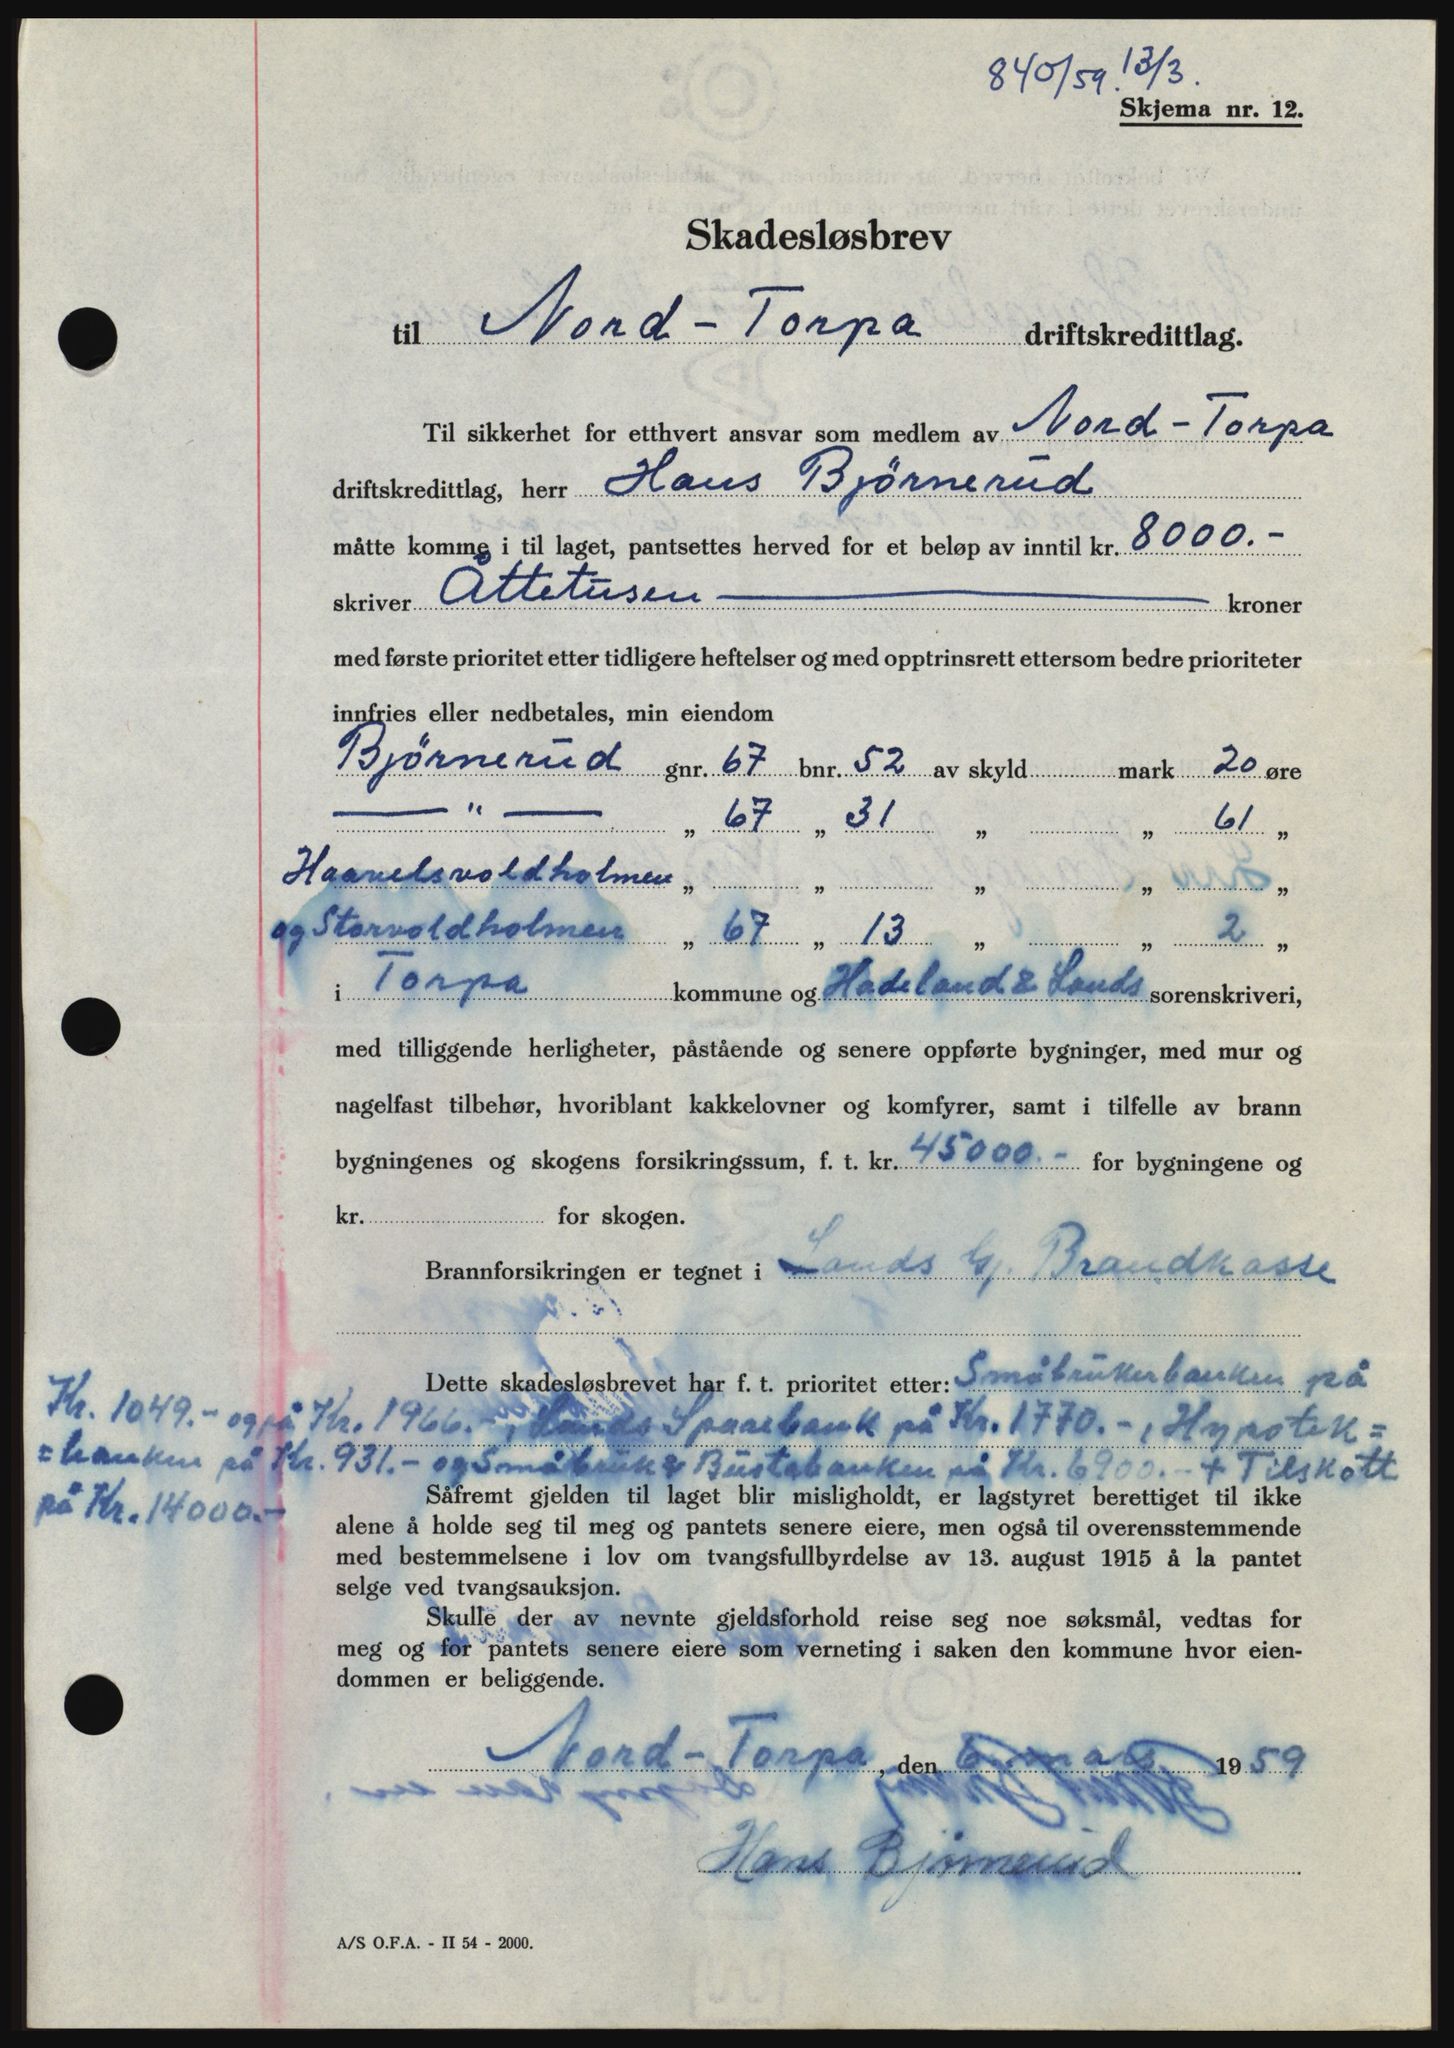 840/59. 13/3.
Skjema nr. 12.
Skadesløsbrev
til Nord - Torpa driftskredittlag.
Til sikkerhet for etthvert ansvar som medlem av Nord - Torpa
driftskredittlag, herr Hans Björnerud
måtte komme i til laget, pantsettes herved for et beløp av inntil kr. 8000.-
skriver Åttetusen — kroner
med første prioritet etter tidligere heftelser og med opptrinsrett ettersom bedre prioriteter
innfries eller nedbetales, min eiendom
Björnerud gnr. 67 bnr. 52 av skyld mark 20 øre
— " — „ 67 „ 31 „ „ 61 „
Haavelsvoldholmen „ „ „ „ „
og Storvoldholmen „ 67 „ 13 „ „ 2 „
i Torpa kommune og Hadeland & Lands sorenskriveri,
med tilliggende herligheter, påstående og senere oppførte bygninger, med mur og
nagelfast tilbehør, hvoriblant kakkelovner og komfyrer, samt i tilfelle av brann
bygningenes og skogens forsikringssum, f. t. kr. 45000.- for bygningene og
kr. for skogen.
Brannforsikringen er tegnet i Lands Gj. Brandkasse
Dette skadesløsbrevet har f. t. prioritet etter: Småbrukerbanken på
Kr. 1049.- og på Kr. 1966.-, Lands Sparebank på Kr. 1770.-, Hypotek=
=banken på Kr. 931.- og Småbruk & Bustabanken på Kr. 6900.- + Tilskott
på Kr. 14000.-
Såfremt gjelden til laget blir misligholdt, er lagstyret berettiget til ikke
alene å holde seg til meg og pantets senere eiere, men også til overensstemmende
med bestemmelsene i lov om tvangsfullbyrdelse av 13. august 1915 å la pantet
selge ved tvangsauksjon.
Skulle der av nevnte gjeldsforhold reise seg noe søksmål, vedtas for
meg og for pantets senere eiere som verneting i saken den kommune hvor eien-
dommen er beliggende.
Nord - Torpa, den 6 mars 1959
Hans Bjørnerud
A/S O.F.A. - II 54 - 2000.